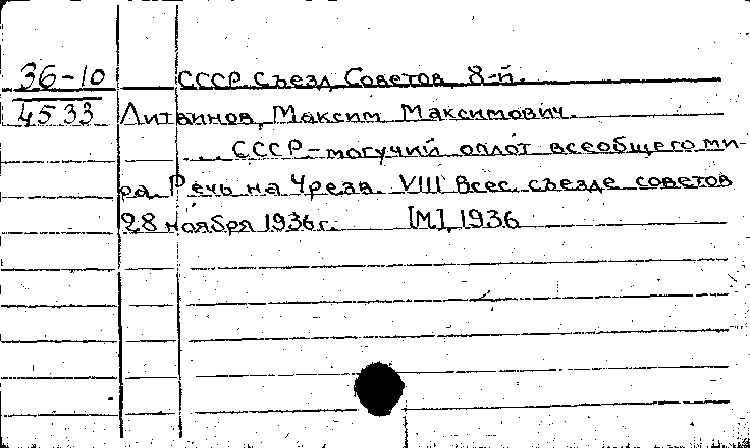 36-10 СССР Съезд Советов 8-й.
4533 Литвинов, Максим Максимович.
... СССР - могучий оплот всеобщего ми-
ра. Речь на Чрезв. VIII Всес. съезде советов
28 ноября 1936 г. [М], 1936